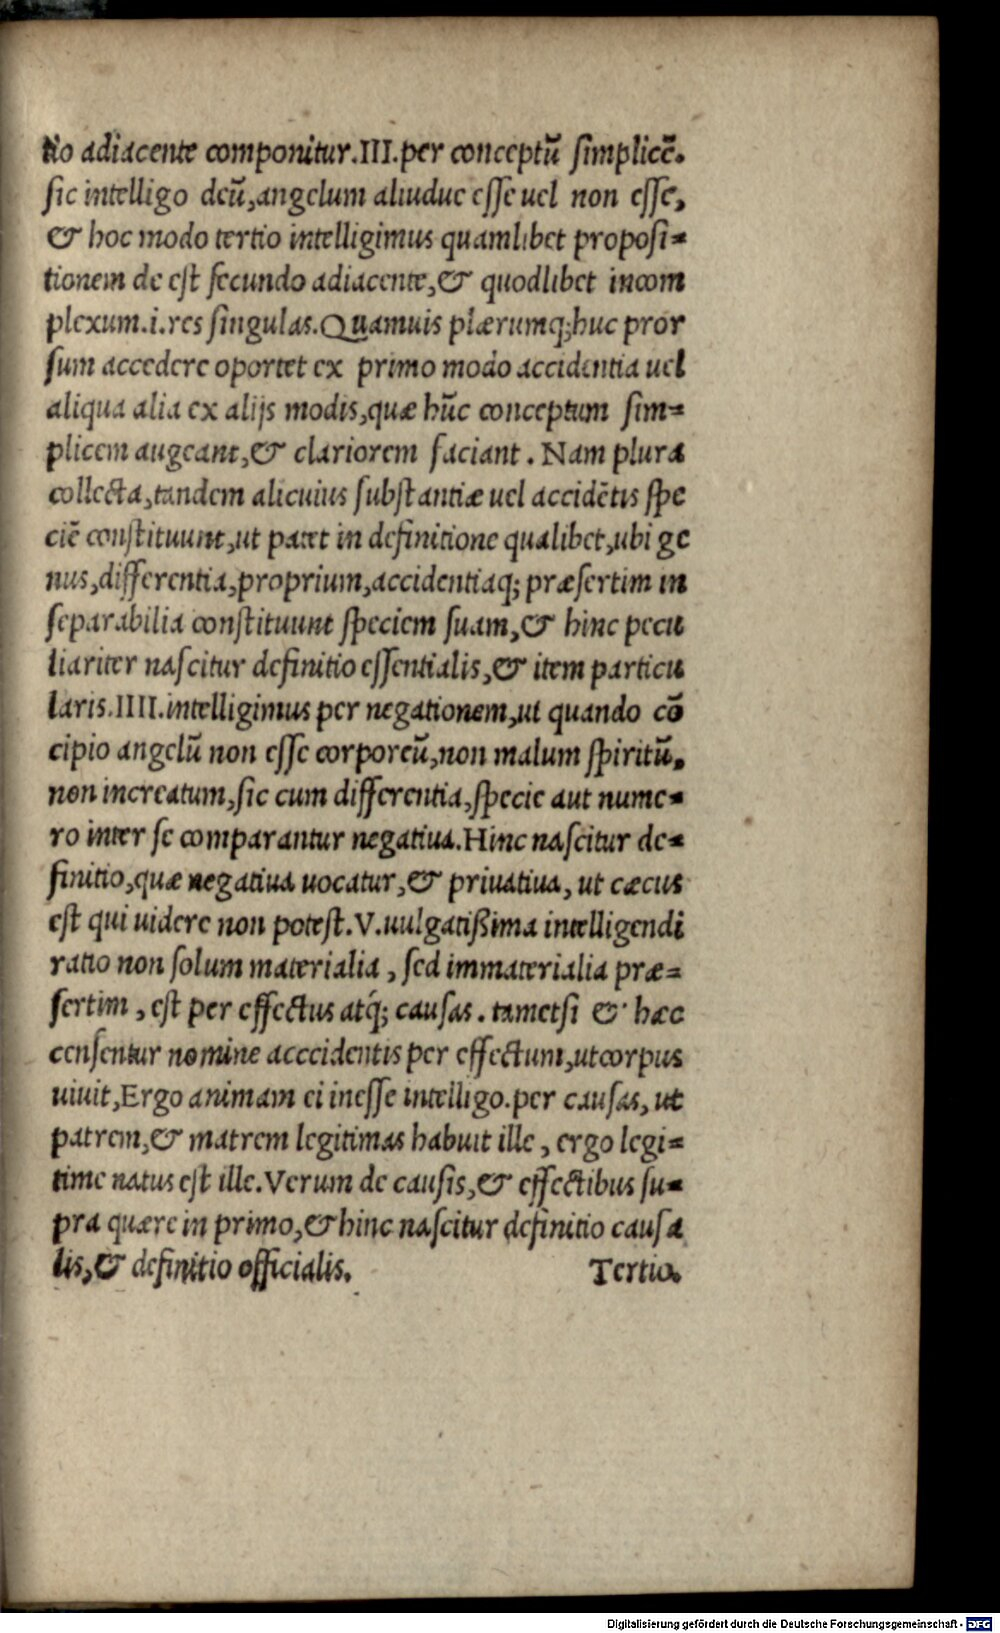 tio adiacente componitur.III.per conceptū simplicē.
sic intelligo deū,angelum aliudue esse uel non esse,
& hoc modo tertio intelligimus quamlibet proposi=
tionem de est secundo adiacente,& quodlibet incom
plexum.i.res singulas.Quamuis plærumq;huc pror
sum accedere oportet ex primo modo accidentia uel
aliqua alia ex alijs modis,quæ hūc conceptum sim=
plicem augeant,& clariorem faciant. Nam plura
collecta,tandem alicuius substantiæ uel accidētis spe
ciē constituunt,ut patet in definitione qualibet,ubi ge
nus,differentia,proprium,accidentiaq; præsertim in
separabilia constituunt speciem suam,& hinc pecu
liariter nascitur definitio essentialis,& item particu
laris.IIII.intelligimus per negationem,ut quando cō
cipio angelū non esse corporeū,non malum spiritū,
non increatum,sic cum differentia,specie aut nume=
ro inter se comparantur negatiua.Hinc nascitur de=
finitio,quæ negatiua uocatur,& priuatiua, ut cæcus
est qui uidere non potest.V.uulgatißima intelligendi
ratio non solum materialia, sed immaterialia præ=
sertim, est per effectus atq́; causas. tametsi & hæc
censentur nomine acccidentis per effectum,utcorpus
uiuit,Ergo animam ei inesse intelligo.per causas, ut
patrem,& matrem legitimas habuit ille, ergo legi=
time natus est ille.Verum de causis,& effectibus su=
pra quære in primo,& hinc nascitur definitio causa
lis,& definitio officialis. Tertio.
Digitalisierung gefördert durch die Deutsche Forschungsgemeinschaft - DFG